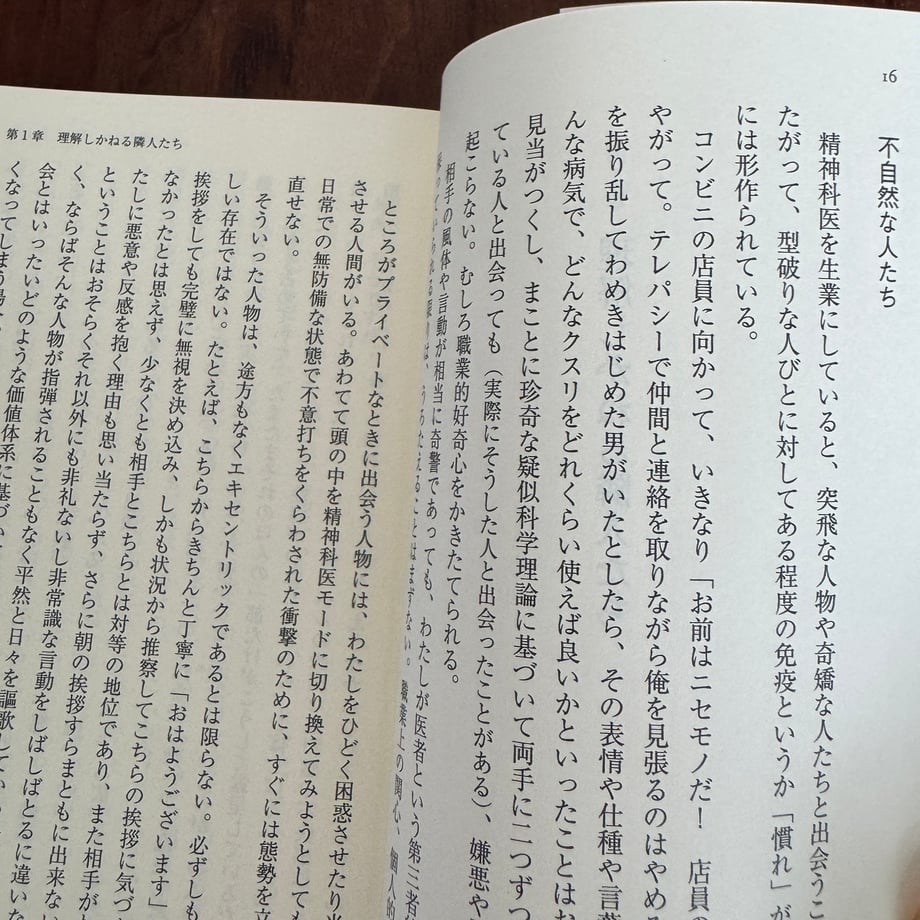 16
不自然な人たち
精神科医を生業にしていると、突飛な人物や奇矯な人たちと出会うこ
たがって、型破りな人びとに対してある程度の免疫というか「慣れ」が
には形作られている。
コンビニの店員に向かって、いきなり「お前はニセモノだ！　店員の
やがって。テレパシーで仲間と連絡を取りながら俺を見張るのはやめ
を振り乱してわめきはじめた男がいたとしたら、その表情や仕種や言葉
んな病気で、どんなクスリをどれくらい使えば良いかといったことはお
見当がつくし、まことに珍奇な疑似科学理論に基づいて両手に二つずつ
ている人と出会っても（実際にそうした人と出会ったことがある）、嫌悪や
起こらない。むしろ職業的好奇心をかきたてられる。
相手の風体や言動が相当に奇警であっても、わたしが医者という第三者
は、うろたえることはまずない。職業上の関心、個人的
第1章　理解しかねる隣人たち
ところがプライベートなときに出会う人物には、わたしをひどく困惑させたり当
させる人間がいる。あわてて頭の中を精神科医モードに切り換えてみようとしても
日常での無防備な状態で不意打ちをくらわされた衝撃のために、すぐには態勢を立
直せない。
そういった人物は、途方もなくエキセントリックであるとは限らない。必ずしも
しい存在ではない。たとえば、こちらからきちんと丁寧に「おはようございます」
挨拶をしても完璧に無視を決め込み、しかも状況から推察してこちらの挨拶に気づ
なかったとは思えず、少なくとも相手とこちらとは対等の地位であり、また相手が
たしに悪意や反感を抱く理由も思い当たらず、さらに朝の挨拶すらまともに出来ない
ということはおそらくそれ以外にも非礼ないし非常識な言動をしばしばとるに違いな
く、ならばそんな人物が指弾されることもなく平然と日々を謳歌してい
会とはいったいどのような価値体系に基づいて
くなってしまう場